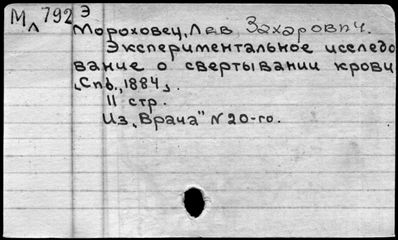 Мл 792 Э
Мороховец, Лев Захарович.
Экспериментальное исследо
вание о свертывании крови
„Спб., 1884„.
11 стр.
Из „Врача" N 20-го.